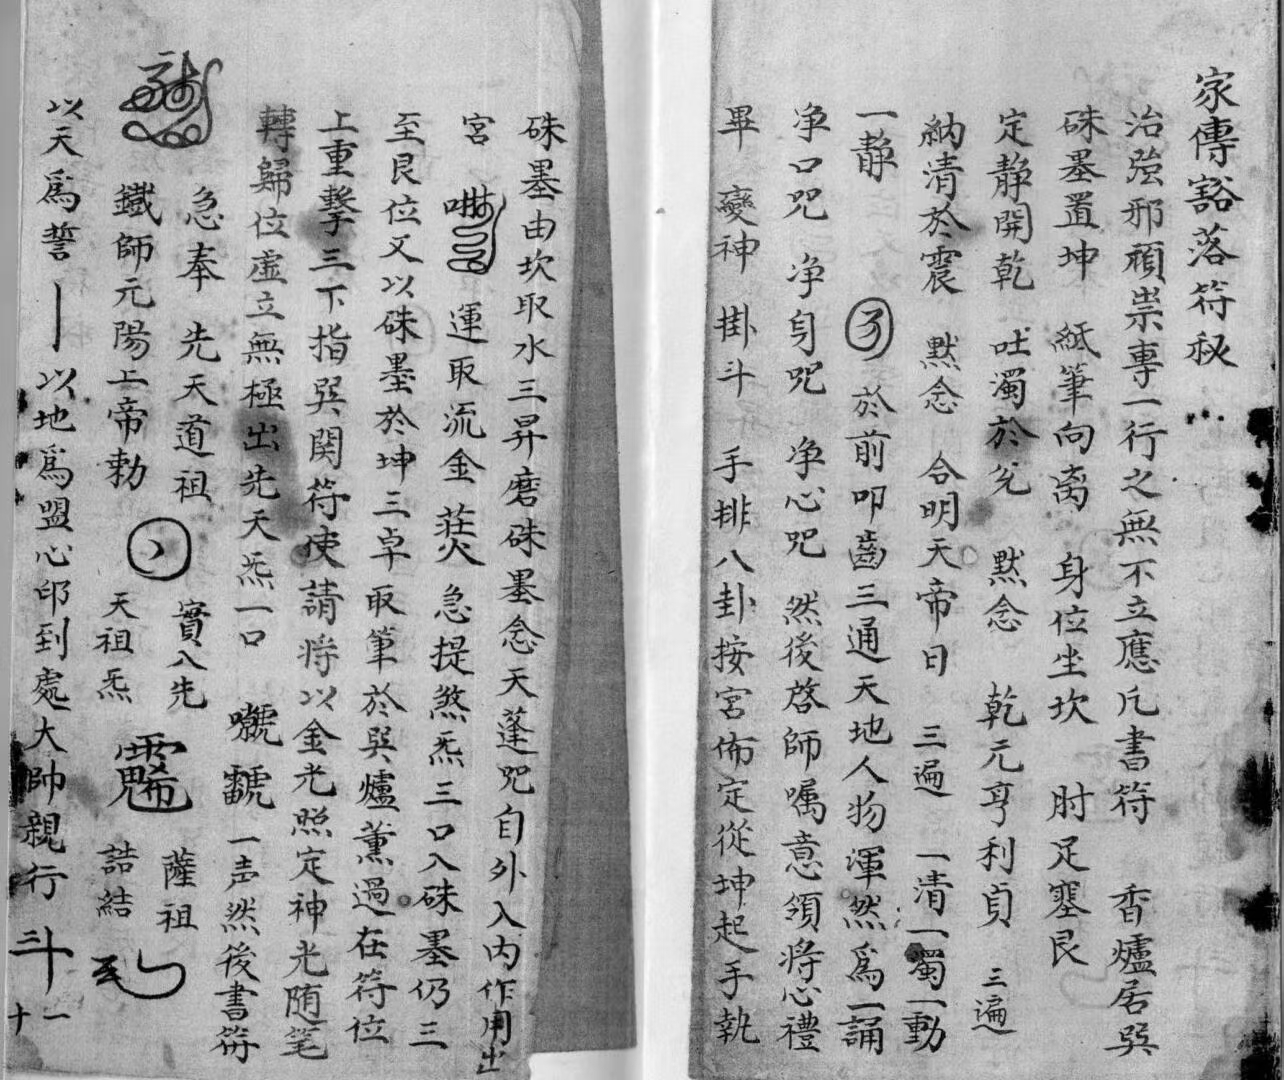 家傳豁落符秘
治強邪頑祟專一行之無不立應凡書符 香爐居巽
硃墨置坤 紙筆向离 身位坐坎 肘足塞艮
定靜開乾 吐濁於兊 默念 乾元亨利貞 三遍
納清於震 默念 合明天帝日 三遍 一清一濁一動
一靜 於前叩齒三通天地人物渾然為一誦
净口咒 净身咒 净心咒 然後啓師嘱意領將心禮
畢 變神 掛斗 手排八卦按宮佈定從坤起手執
硃墨由坎取水三昇磨硃墨念天蓬咒自外入内作用出
宮 運取流金 急提煞炁三口入硃墨仍三
至艮位又以硃墨於坤三卓取筆於巽爐薰過在符位
上重擊三下指巽関符使請將以金光照定神光随笔
轉歸位虚立無極出先天炁一口 一声然後書符
急奉 先天道祖 實八先 薩祖
鐵師元陽上帝勅 天祖炁 詰結
以天為誓 以地為盟心印到處大帥親行
十一